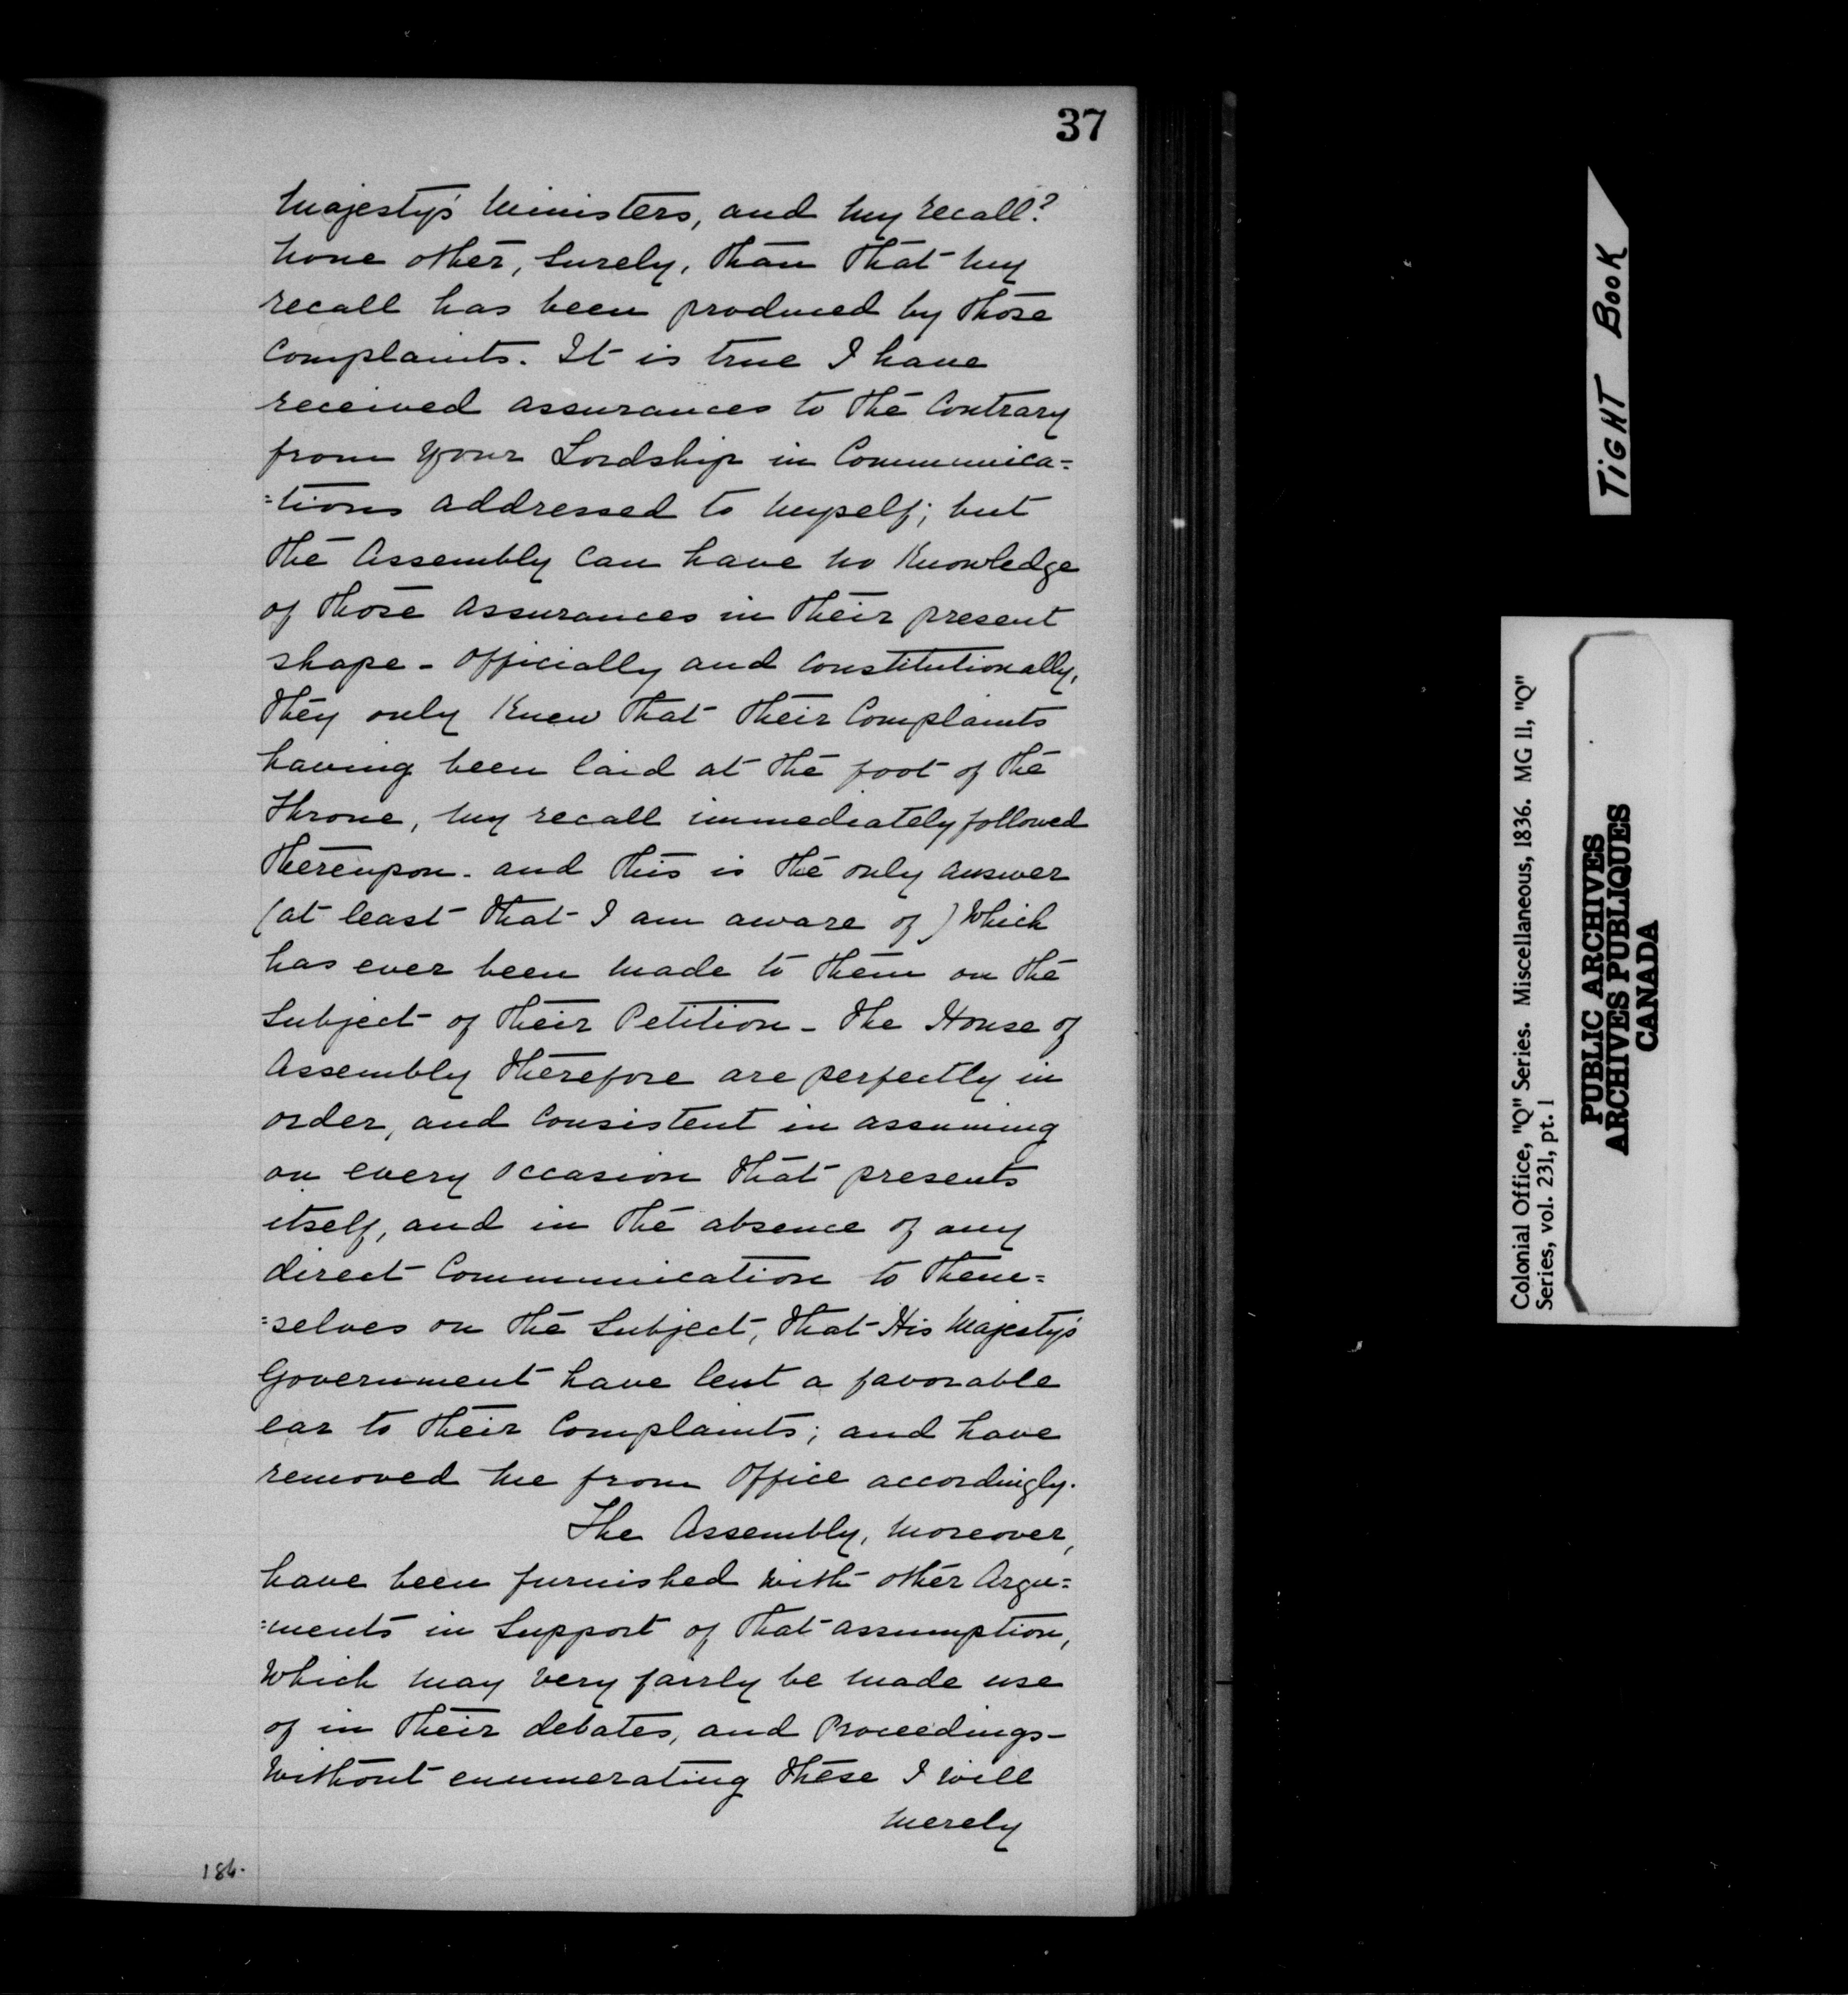 37
Majesty's Ministers, and my recall?
None other, surely, than that my
recall has been produced by those
Complaints. It is true I have
received assurances to the Contrary
from your Lordship in Communica=
=tions addressed to myself; but
the Assembly Can have no Knowledge
of those assurances in their present
shape - Officially and Constitutionally,
they only Knew that their Complaints
having been laid at the foot of the
Throne, my recall immediately followed
thereupon. and this is the only answer
(at least that I am aware of) which
has ever been made to them on the
Subject of their Petition - The House of
Assembly therefore are perfectly in
order, and Consistent in assuming
on every occasion that presents
itself, and in the absence of any
direct Communication to them=
=selves on the Subject, that His Majesty's
Government have lent a favorable
ear to their Complaints; and have
removed me from Office accordingly.
The Assembly, moreover,
have been furnished with other Argu=
=ments in Support of that assumption,
which may very fairly be made use
of in their debates, and Proceedings -
Without enumerating these I will
merely
186.
TiGHT BooK
Colonial Office, "Q" Series. Miscellaneous, 1836. MG 11, "Q"
Series, vol. 231, pt. 1
PUBLIC ARCHIVES
ARCHIVES PUBLIQUES
CANADA